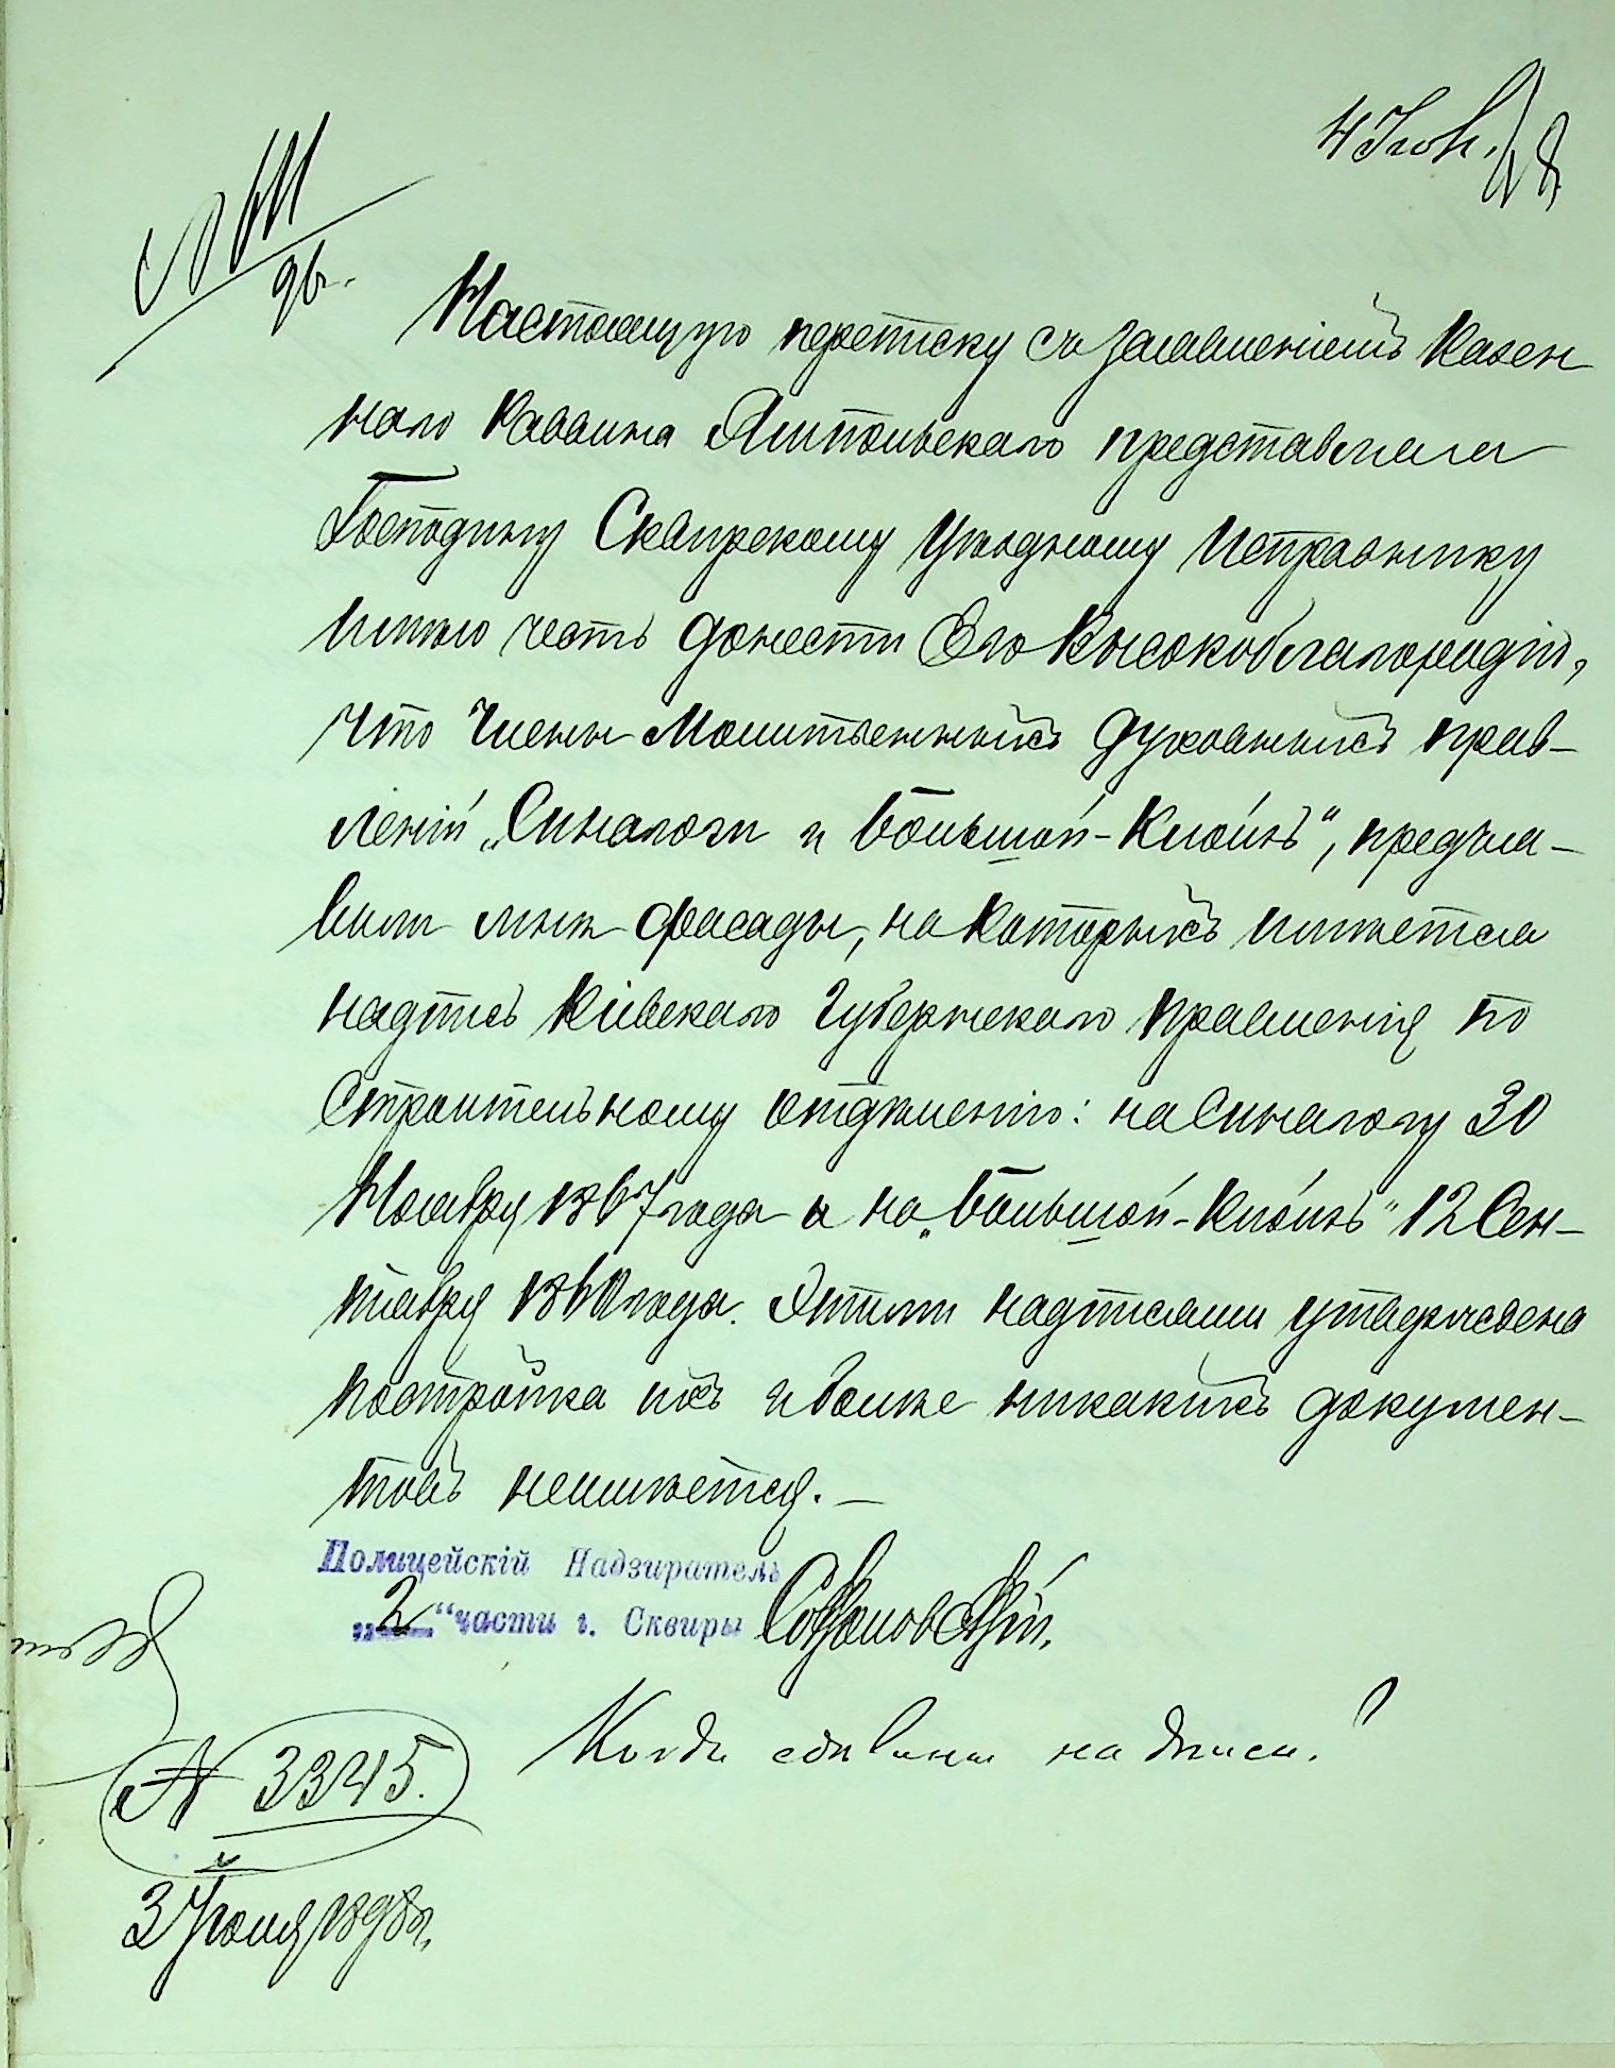 4 Іюн. 98
Настоящую переписку съ заявленіемъ Казен
наго Раввина Ямпольскаго представляя
Господину Сквирскому Уѣздному Исправнику
имѣю честь донести Его Высокоблагородію,
что Члены Молитвенныхъ духовныхъ прав-
леній „Синагоги и Большой-Клойзъ“, предъя-
вили мнѣ фасады, на которыхъ имѣется
надпись Кіевскаго Губернскаго Правленія по
Строительному отдѣленію: на Синагогу 30
Ноября 1867 года и на „Большой-Клойзъ“ 12 Сен-
тября года. Этими надписями утверждена
постройка ихъ и болѣе никакихъ докумен-
товъ неимѣется. —
Полицейскій Надзиратель
„2“ части г. Сквиры
Когда сдѣланы надписи?
№ 3345.
3 Іюня 1898 г.